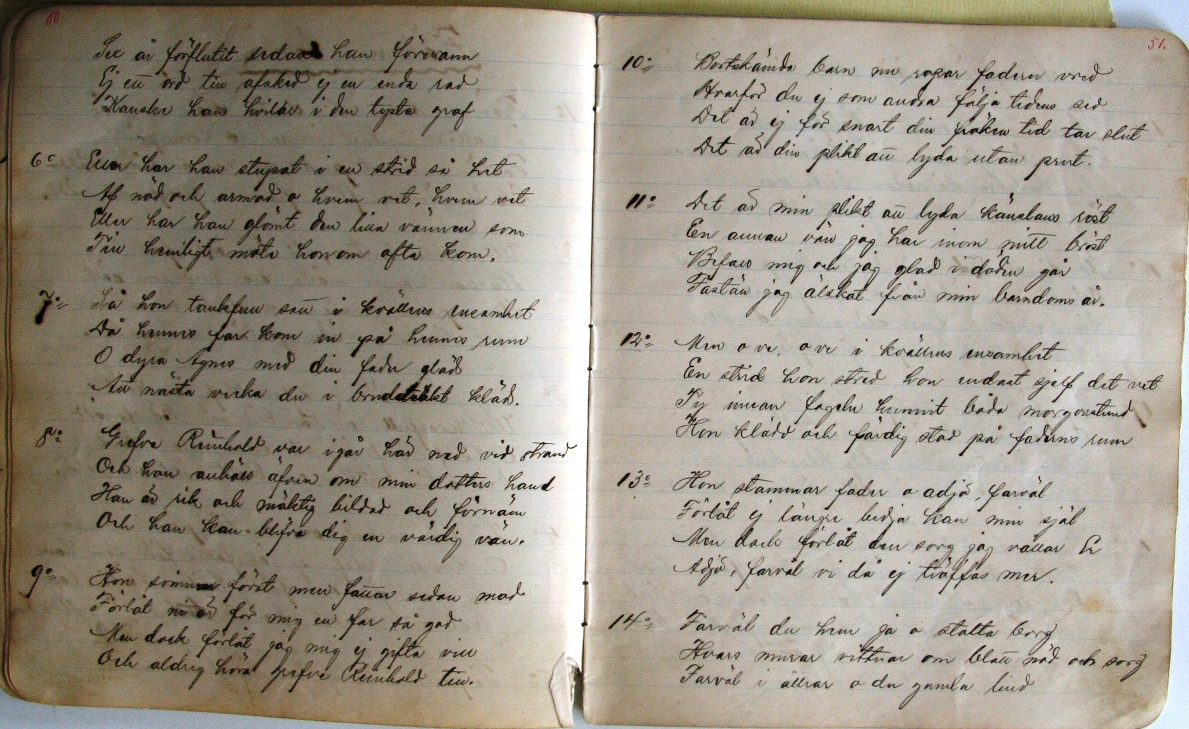 50
Sex år förflutit sedan han försvann
Ej ett ord till afsked ej en enda rad
Kanske han hvilar i den tysta graf
6º Eller har han stupat i en strid så het
Af nöd och armod o hvem vet, hvem vet
Eller har han glömt den lilla vännen som
Till hemligt möte honom ofta kom.
7º Så hon tankfull satt i kvällens ensamhet
Då hennes far kom in på hennes rum
O dyra Agnes med din fader gläd
Att nästa vecka du i bruddräkt kläd.
8º Grefve Reinhold var igår här ned vid strand
Och han anhöll äfven om min dotters hand
Han är rik och mäktig bildad och förnäm
Och han kan blifva dig en värdig vän.
9º Hon först men fattar sedan mod
Förlåt ni är för mig en far så god
Men dock förlåt jag mig ej gifta vill
Och aldrig höra grefve Reinhold till.
51.
10º Bortskämda barn nu ropar fadern vred
Hvarför du ej som andra följa tidens sed
Det är ej för snart din fröken tid tar slut
Det är din plikt att lyda utan prut.
11º Det är min plikt att lyda känslans röst
En annan vän jag har inom mitt bröst
Befall mig och jag glad i döden går
Fastän jag älskat från min barndoms år.
12º Men o ve, o ve i kvällens ensamhet
En strid hon stred hon endast sjelf det vet
Ty innan fogeln hunnit båda morgonstund
Hon klädd och färdig stod på faderns rum
13º Hon stammar fader o adjö, farväl
Förlåt ej längre bedja kan min själ
Men dock förlåt den sorg jag vållar Er
Adjö, farväl vi då ej träffas mer.
14º Farväl du hem ja o stolta borg
Hvars murar vittnar om blott nöd och sorg
Farväl i ällrar o du gamla lind